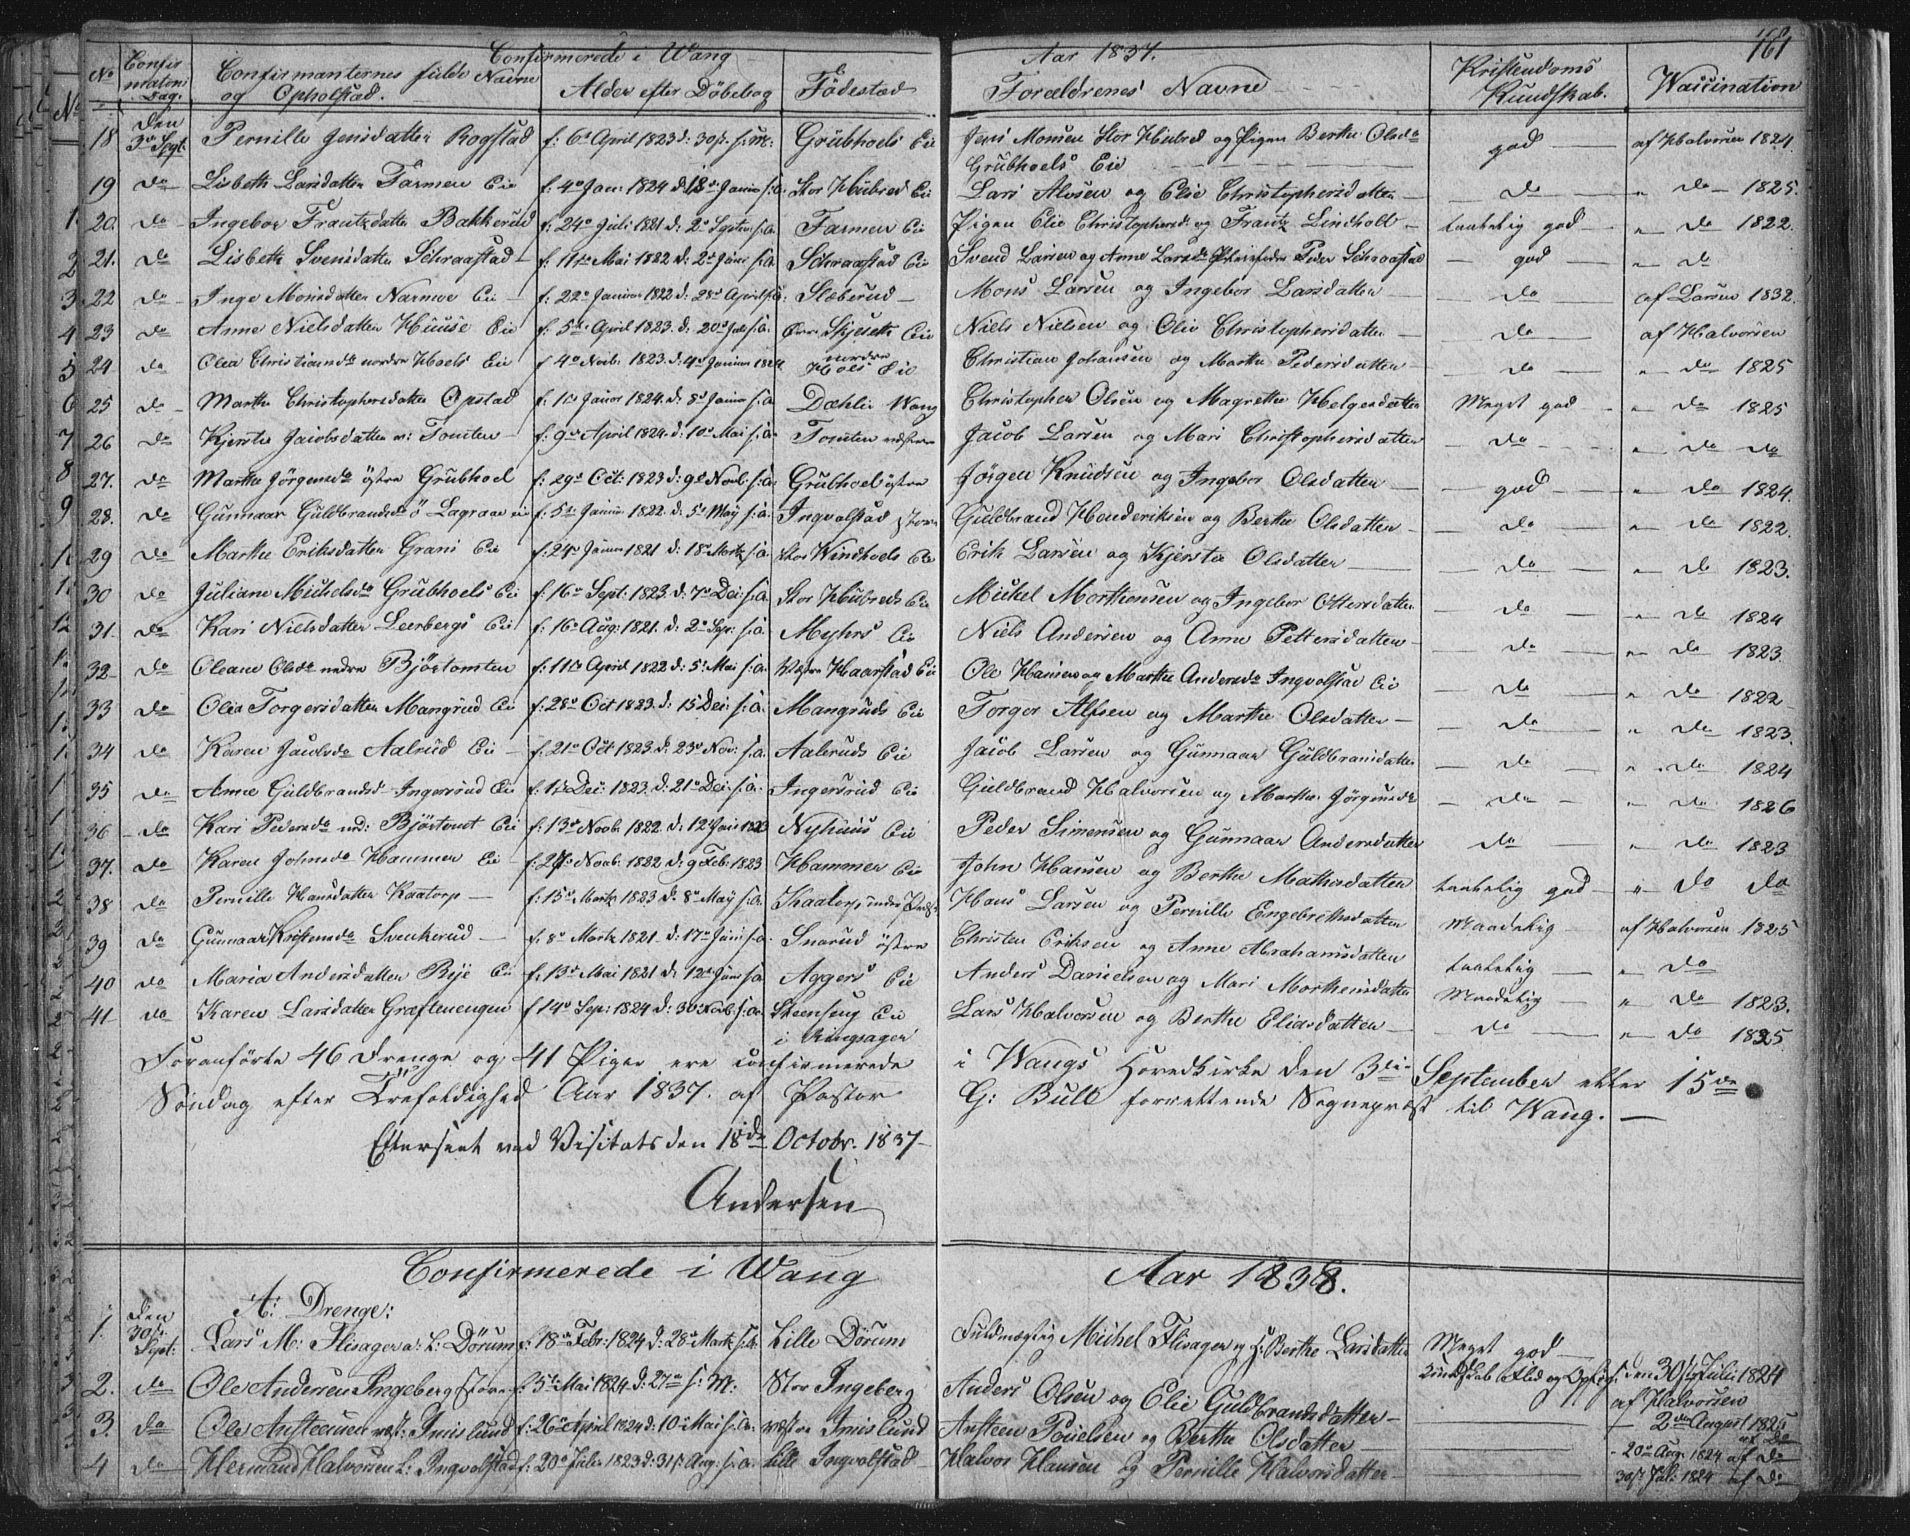 161
Confirmerede i Wang Aar 1837.
No Confirmations Dag. Confirmanternes fulde Navne og Opholstad. Alder efter Döbebog Födestæd Forældrenes Navne Kristendoms Kundskab. Waccination
18 den 3die Sept. Pernille Jensdatter Rogstad f: 6te April 1823 d: 30te s: M: Grübhoels Eie Jens Monsen Stor Hubred og Pigen Berthe Olsda god af Halvorsen 1824.
Grübhoels Eie
19 do Lisbeth Larsdatter Farmen Eie f: 4de Jan: 1824 d: 18de Januar s: A. Stor Hübred Eie Lars Alvsen og Elie Christophersdatter do " do 1825.
20. do Ingebor Frantzdatter Bakkerud f: 24de Juli 1821 d: 2de Septem: s: A. Farmen Eie Pigen Elie Christophersd: og Frantz Lindholt taalelig god " do 1822.
21. do Lisbeth Svensdatter Schraastad f: 11te Mai 1822 d: 2de Juni s: A. Schraastad Eie Svend Larsen og Anne Larsda Peder Schraastad god " do
22 do Inge Monsdatter Narmoe Eie f: 22de Januar 1822 d: 28de April s: A: Slæberud Mons Larsen og Ingebor Larsdatter do af Larsen 1832.
23 do Anne Nielsdatter Huuse Eie f: 5te April 1823. d: 20de s: A. Skjeseth Eie Niels Nielsen og Olia Christophersdatter do af Halvorsen
24 do Olea Christiansda nordre Hoels Eie f 4de Novb. 1823. d: 4de Januar 1824 nordre Hols Eie Christian Johansen og Marthe Pedersdatter do " do 1825
25 do Marthe Christophersdatter Opstad f: 1te Januar 1824. d: 8de Januar s: A. Dæhlie Wang Christopher Olsen og Magrethe Helgesdatter Meget god " do 1825
26 do Kjersti Jacobsdatter v: Tomten f: 9de April 1824. d: 10de Mai s: A. Tomten vestre Jacob Larsen og Mari Christophersdatter do " do do
27. do Marthe Jörgensda östre Grübhoel f: 29de Oct: 1823 d: 9de Novb: s: A. Grübhoel östre Jörgen Knudsen og Ingebor Olsdatter god " do 1824.
28. do Gunnaar Güldbrandsda ö Lagraae Eie f: 5te Januar 1822. d: 5te May s: A: Ingvolstad store Güldbrand Henderiksen og Berthe Olsdatter do " do 1822.
29 do Marthe Eriksdatter Grani Eie f: 24de Januar 1821 d: 18de Martz s: A. Stor Windhoels Eie Erik Larsen og Kjersta Olsdatter do " do 1823.
30 do Juliane Mickelsda Grübhoels Eie f: 16de Sept: 1823. d: 7de Dec: s: A. Stor Hübreds Eie Mickel Morthensen og Ingebor Ottersdatter do " do 1824
31. do Kari Nielsdatter Leerbergs Eie f: 16de Aug: 1821. d: 2de Sep: s: A. Myhrs Eie Niels Andersen og Anne Pettersdatter do " do 1823.
32 do Oleane Olsda nedre Björtomten f: 11te April 1822 d: 5te Mai s: A. Haarstad Eie Ole Hansen og Marthe Andersda Ingvolstad Eie do " do 1822
33 do Olia Torgersdatter Mangrud Eie f: 28de Oct 1823. d: 15 Dec: s: A. Mangruds Eie Torger Alfsen og Marthe Olsdatter do " do 1823.
34 do Karen Jacobsda Aalrud Eie f: 21de Oct 1823. d: 23de Nov: s: A. Aalruds Eie Jacob Larsen og Gunnaar Güldbransdatter do " do 1824
35 do Anne Güldbrandsd Ingersrud Eie f: 1te Dec: 1823. d: 21de Dec: s: A. Ingersrud Eie Güldbrand Halvorsen og Marthe Jörgensda do " do 1826
36 do Kari Pedersda ned: Björtomt Eie f: 13de Novb. 1822. d: 12te Jan 1823 Nyhuus Eie Peder Simensen og Gunnaar Andersdatter do " do 1823
37. do Karen Johnsda Hammer Eie f: 27de Novb. 1822 d: 9de Feb: 1823 Hammer Eie John Hansen og Berthe Mathesdatter taalelig god " do do
38 do Pernille Hansdatter Kaatorp f: 15de Martz 1823 d: 8de May s: A. Kaatorp under Hans Larsen og Pernille Engebrethsdatter Maadelig af Halvorsen 1825
39 do Gunnaar Kristensda Svenkerud f: 8de Martz 1821. d: 17de Juni s: A. Snarud östre Christen Eriksen og Anne Abrahamsdatter taalelig " do
40 do Maria Andersdatter Rye Eie f: 13de Mai 1821 d: 12te Juni s: A. Aggers Eie Anders Danielsen og Mari Morthensdatter Maadelig " do 1823.
41 do Karen Larsdatter Græftenengen f 14de Sep: 1824 d: 30de s: A. Steenseng Eie i Ringsager Lars Halvorsen og Berthe Eliasdatter do " do 1825.
Foranförte 46 Drenge og 41 Piger ere confirmerede i Wangs Hovedkirke den 3die September eller 15de
Söndag efter Trefoldighed Aar 1837. af Pastor G: Bull forrettende Sogneprest til Wang.
Efterseet ved Visitats den 18de Octobr. 1837
Andersen
Confirmerede i Wang Aar 1838.
A: Drenge:
1. den 30te Sept: Lars M: Flisager a: L: Dörum f: 18de Febr: 1824 d: 28de Martz s: A. Lille Dörum Fuldmægtig Michel Flisager og H: Berthe Larsdatter Meget god
Kundskab Flid og den 30te Juli 1824 af Halvorsen
2. do Ole Andersen Ingeberg store f: 5te Mai 1824 d: 27de s: M: Stor Ingeberg Anders Olsen og Elie Guldbrandsdatter 2den August 1825 af Do
3. do Ole Austeensen vest: Imislund f: 26de April 1824 d: 10de Mai s: A. vestre Imislund Austeen Poulsen og Berthe Olsdatter 20de Aug. 1824 af Do
4 do Hermand Halvorsen L: Ingvolstad f: 20de Julii 1823 d: 31te Aug: s: A. Lille Ingvolstad Halvor Hansen og Pernille Halvorsdatter 30te Jul: 1824 af Do